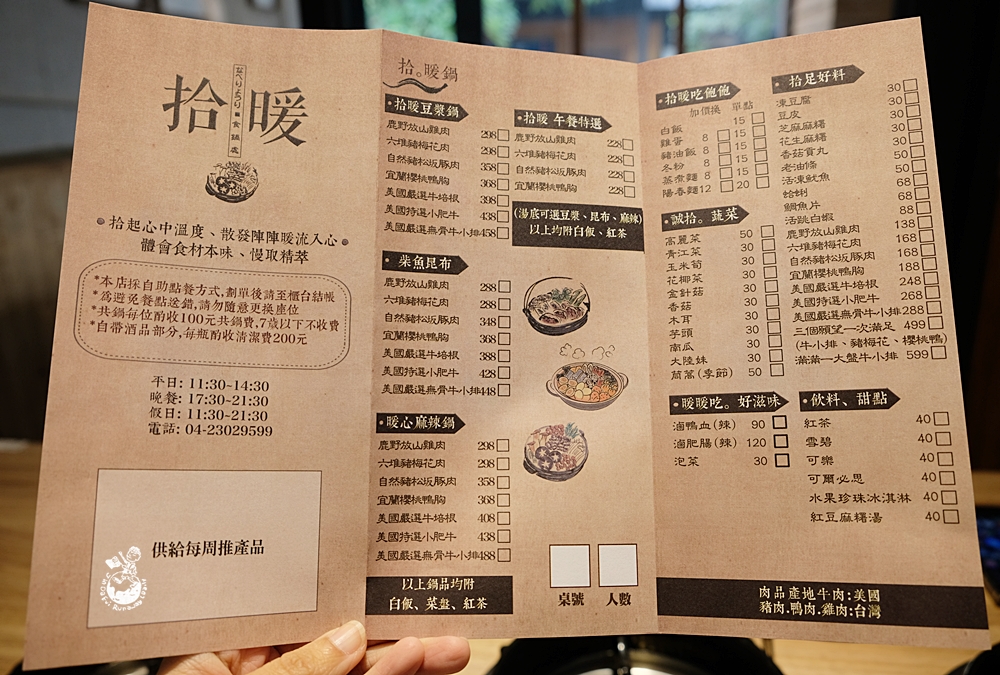 拾暖
食鍋處
•拾起心中溫度、散發陣陣暖流入心•
體會食材本味、慢取精萃
*本店採自助點餐方式,劃單後請至櫃台結帳
*為避免餐點送錯,請勿隨意更換座位
*共鍋每位酌收100元共鍋費,7歲以下不收費
*自帶酒品部分,每瓶酌收清潔費200元
平日: 11:30~14:30
晚餐: 17:30~21:30
假日: 11:30~21:30
電話: 04-23029599
供給每周推產品
拾。暖鍋
•拾暖豆漿鍋
鹿野放山雞肉 298
六堆豬梅花肉 298
自然豬松坂豚肉 358
宜蘭櫻桃鴨胸 368
美國嚴選牛培根 398
美國特選小肥牛 438
美國嚴選無骨牛小排458
•柴魚昆布
鹿野放山雞肉 288
六堆豬梅花肉 288
自然豬松坂豚肉 348
宜蘭櫻桃鴨胸 368
美國嚴選牛培根 388
美國特選小肥牛 428
美國嚴選無骨牛小排448
•暖心麻辣鍋
鹿野放山雞肉 298
六堆豬梅花肉 298
自然豬松坂豚肉 358
宜蘭櫻桃鴨胸 368
美國嚴選牛培根 408
美國特選小肥牛 438
美國嚴選無骨牛小排488
以上鍋品均附
白飯、菜盤、紅茶
•拾暖 午餐特選
鹿野放山雞肉 228
六堆豬梅花肉 228
自然豬松坂豚肉 228
宜蘭櫻桃鴨胸 228
(湯底可選豆漿、昆布、麻辣)
以上均附白飯、紅茶
桌號 人數
•拾暖吃飽飽
加價換 單點
白飯 15
雞蛋 8 15
豬油飯 8 15
冬粉 8 15
蒸煮麵 8 15
陽春麵12 20
•誠拾。蔬菜
高麗菜 50
青江菜 30
玉米筍 30
花椰菜 30
金針菇 30
香菇 30
木耳 30
芋頭 30
南瓜 30
大陸妹 30
茼蒿(季節) 50
•暖暖吃。好滋味
滷鴨血(辣) 90
滷肥腸(辣) 120
泡菜 30
•拾足好料
凍豆腐 30
豆皮 30
芝麻麻糬 30
花生麻糬 30
香菇貢丸 30
老油條 50
活凍魷魚 50
蛤蜊 68
鯛魚片 68
活跳白蝦 88
鹿野放山雞肉 138
六堆豬梅花肉 168
自然豬松坂豚肉 168
宜蘭櫻桃鴨胸 188
美國嚴選牛培根 248
美國特選小肥牛 268
美國嚴選無骨牛小排288
三個願望一次滿足 499
(牛小排、豬梅花、櫻桃鴨)
滿滿一大盤牛小排 599
•飲料、甜點
紅茶 40
雪碧 40
可樂 40
可爾必思 40
水果珍珠冰淇淋 40
紅豆麻糬湯 40
肉品產地牛肉:美國
豬肉.鴨肉.雞肉:台灣